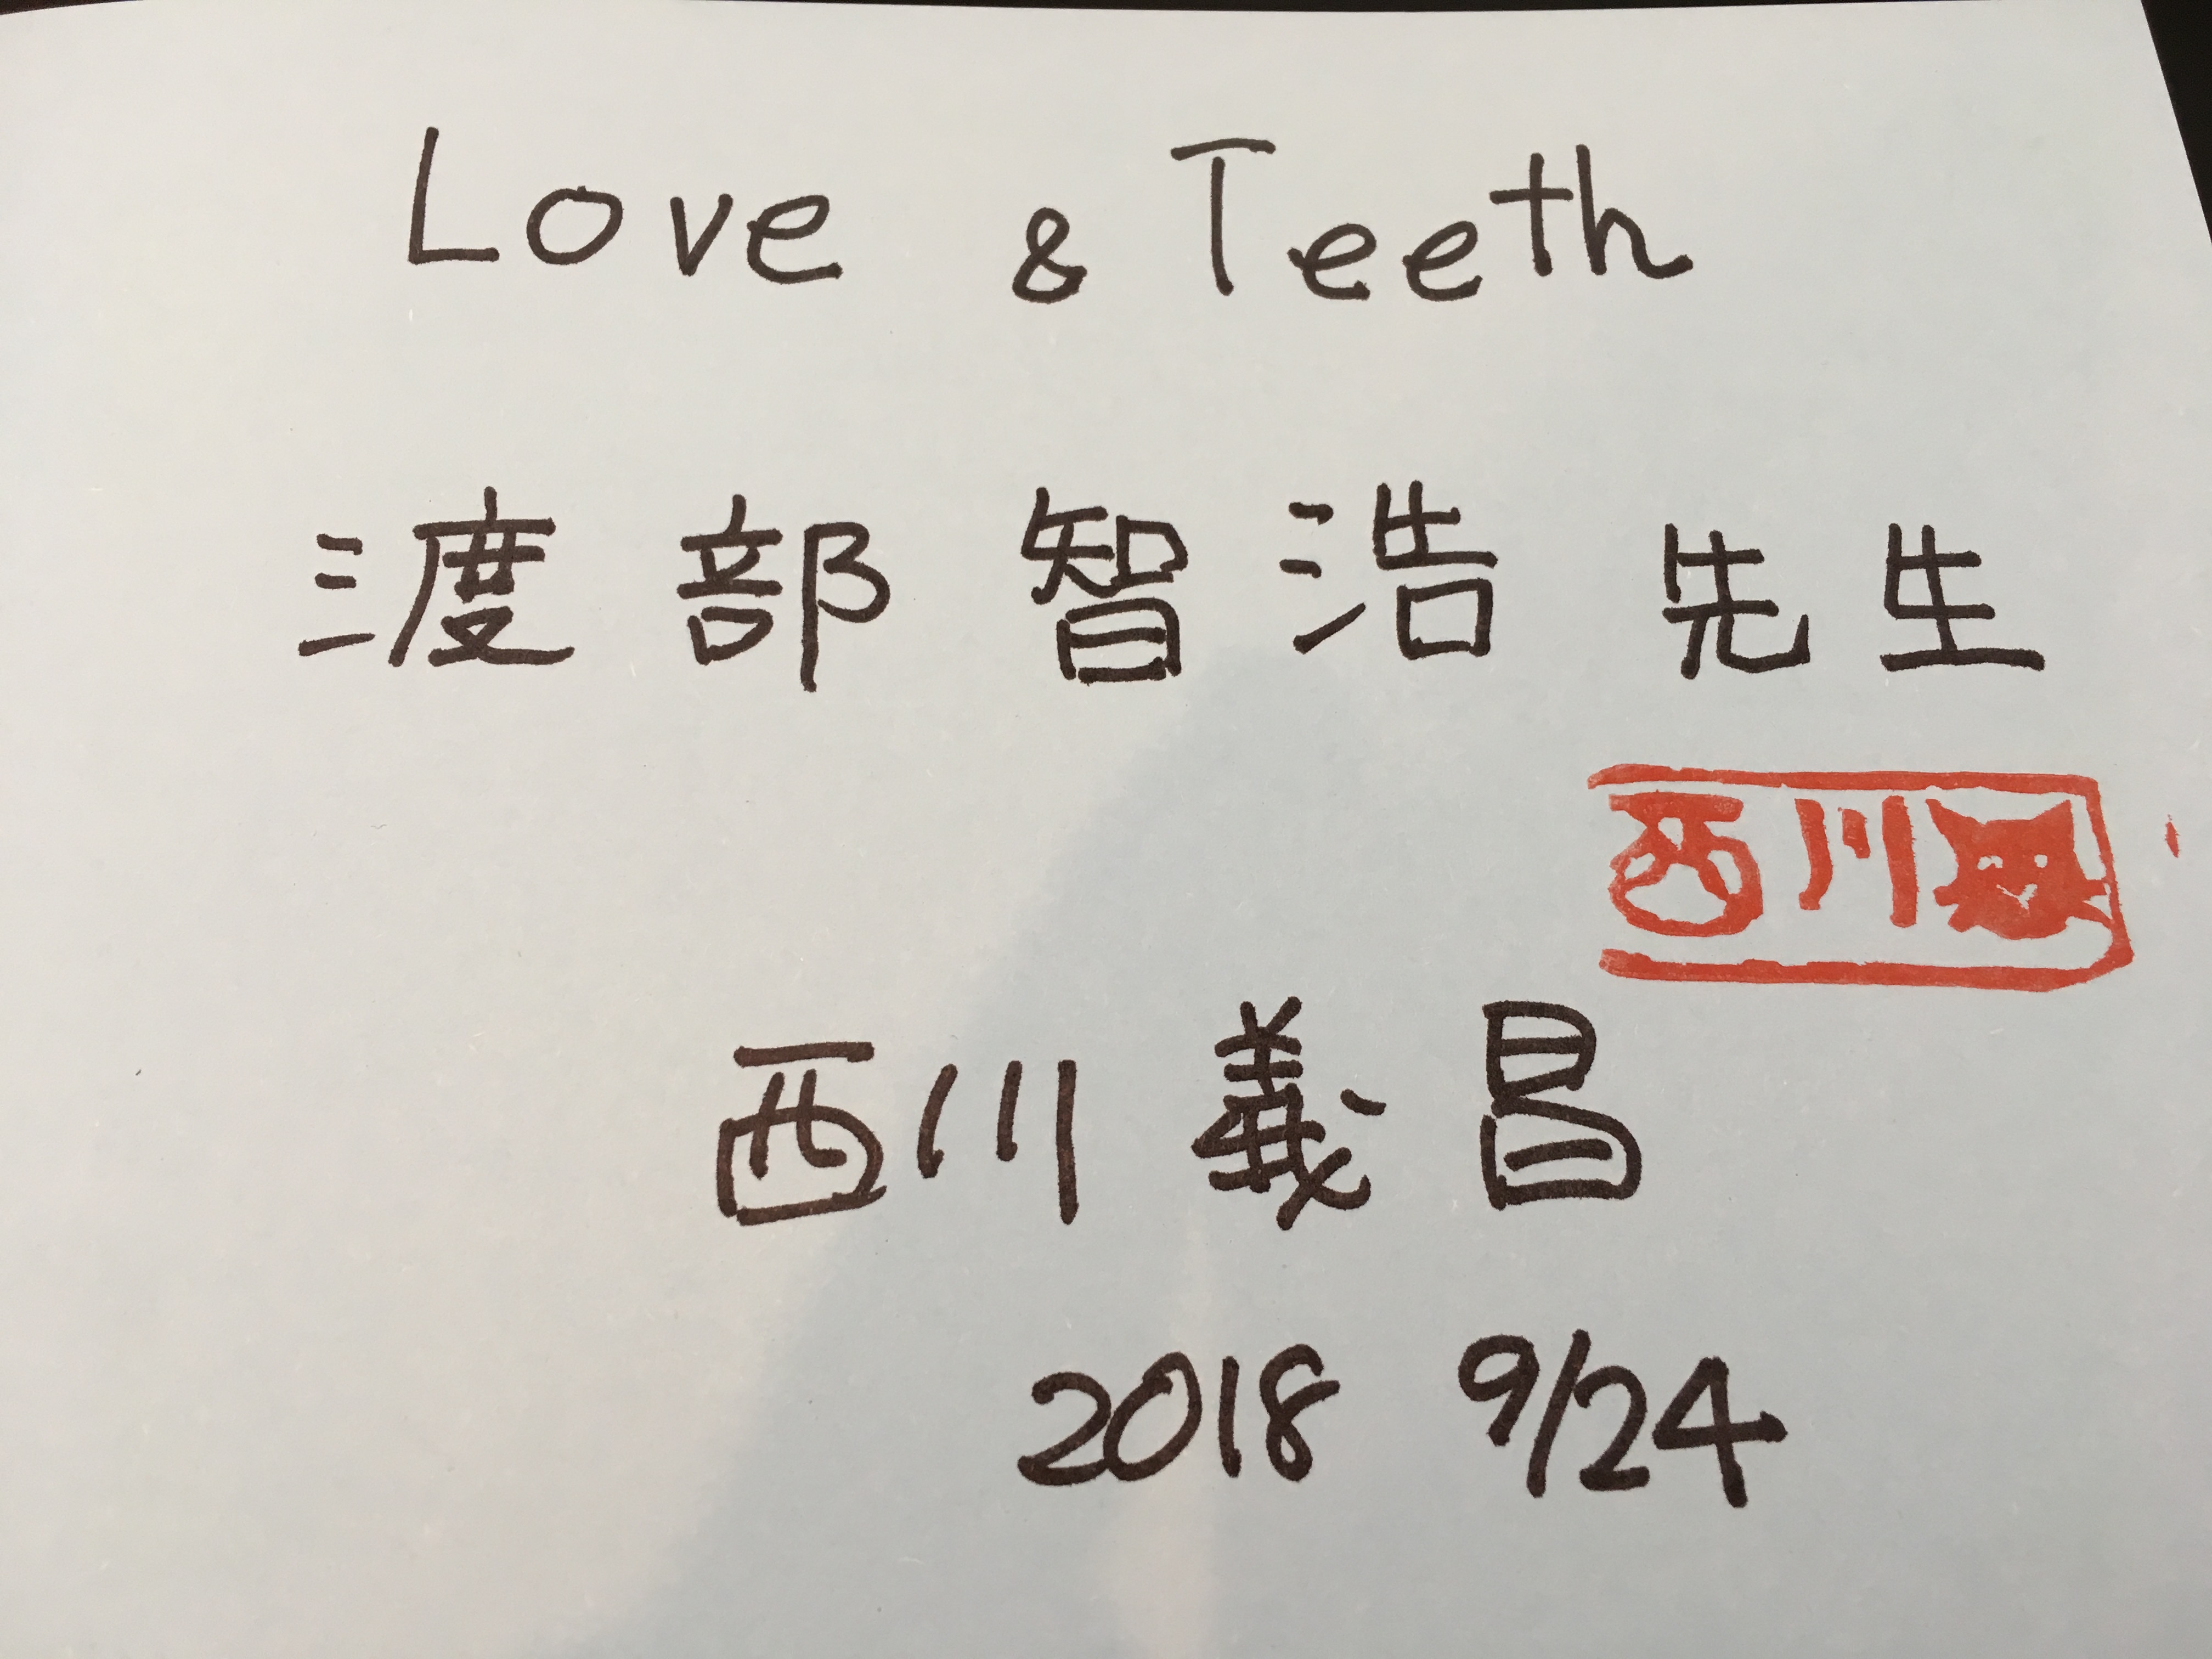 Love & Teeth
渡部 智浩 先生
西川
西川 義昌
2018 9/24